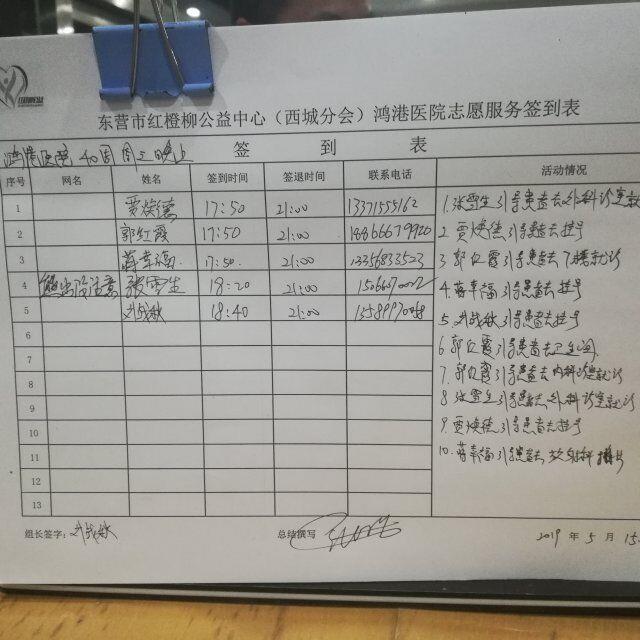 东营市红橙柳公益中心（西城分会）鸿港医院志愿服务签到表
鸿港医院 40周 周三晚上 签 到 表
序号 网名 姓名 签到时间 签退时间 联系电话 活动情况
1 贾焕德 17:50 21:00 13371555162
2 郭红霞 17:50 21:00
3 蒋幸福 17:50. 21:00 13356833523
4 张雪生 18:20 21:00
5 刘战敏 18:40 21:00
6
7
8
9
10
11
12
13
1. 张雪生引导患者去外科诊室就
2. 贾焕德引导患者去挂号
3. 郭红霞引导患者去 就诊
4. 蒋幸福引导患者去挂号
5. 刘战敏引导患者去挂号
6. 郭红霞引导患者去卫生间
7. 郭红霞引导患者去内科诊室就诊
8. 张雪生引导患者去外科诊室就诊
9. 贾焕德引导患者去挂号
10. 蒋幸福引导患者去
组长签字：刘战敏 总结撰写 2019 年 5 月 15